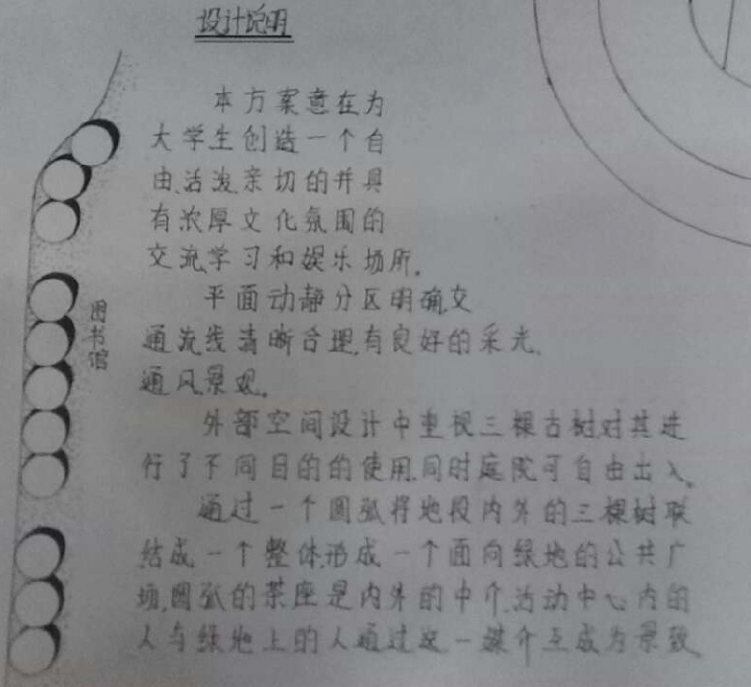 设计说明
本方案意在为
大学生创造一个自
由、活泼、亲切的并具
有浓厚文化氛围的
交流、学习和娱乐场所。
平面动静分区明确，交
通流线清晰合理，有良好的采光、
通风、景观。
图书馆
外部空间设计中重视三棵古树，对其进
行了不同目的的使用，同时庭院可自由出入。
通过一个圆弧将地段内外的三棵树联
结成一个整体，形成一个面向绿地的公共广
场，圆弧的茶座是内外的中介，活动中心内的
人与绿地上的人通过这一媒介互成为景致